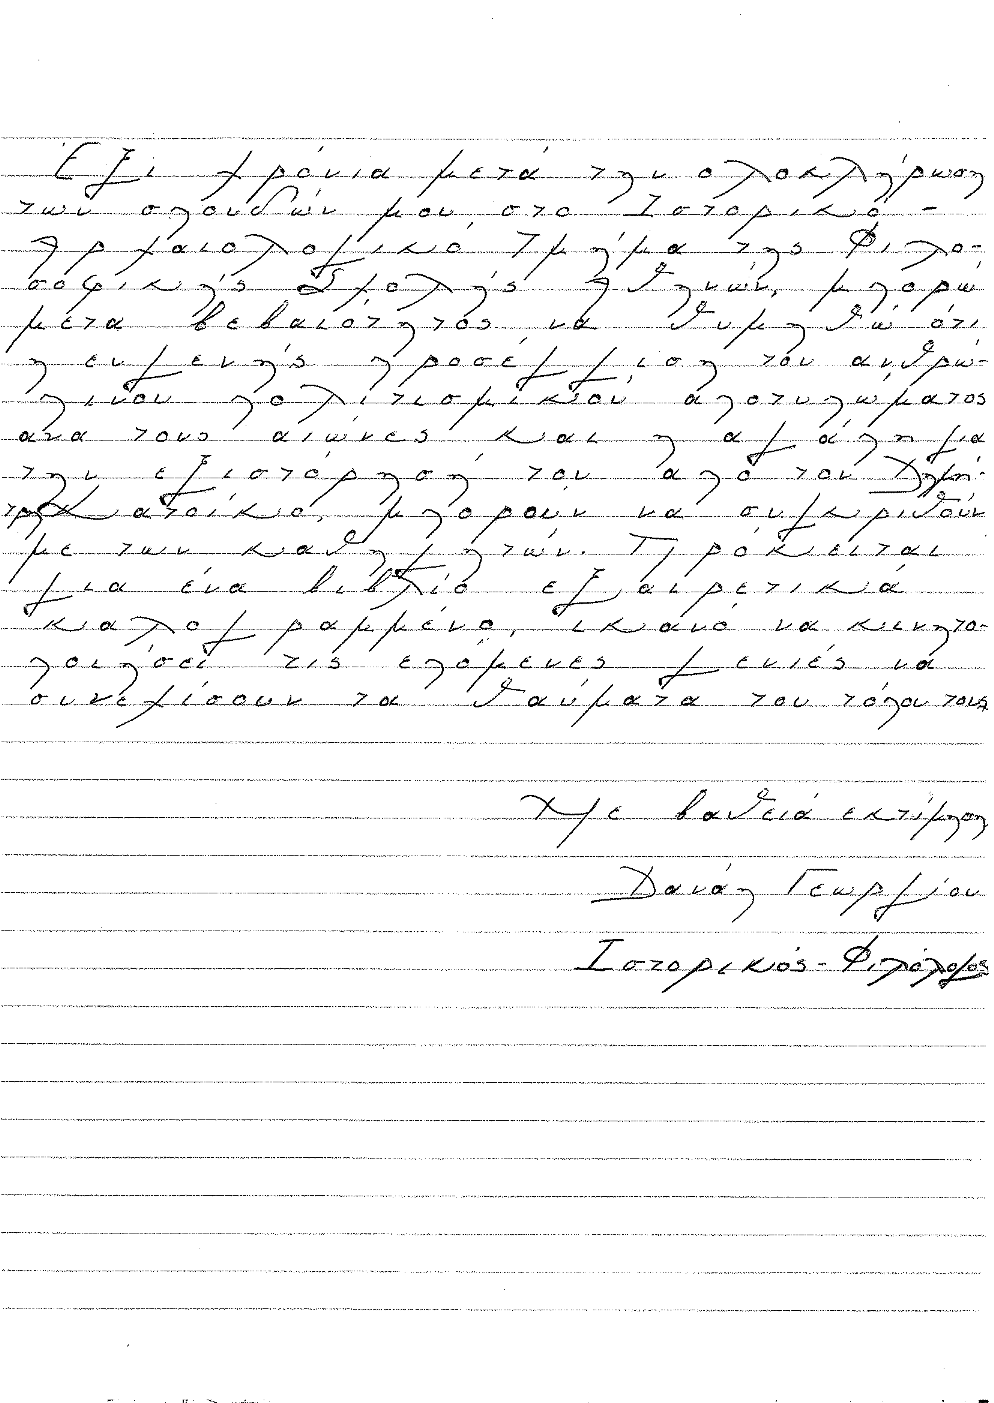 Έξι χρόνια μετά την ολοκλήρωση
των σπουδών μου στο Ιστορικό -
Αρχαιολογικό Τμήμα της Φιλο-
σοφικής Σχολής Αθηνών, μπορώ
μετα βεβαιότητος να θυμηθώ ότι
η ευγενής προσέγγιση του ανθρώ-
πινου πολιτισμικού αποτυπώματος
ανα τους αιώνες και η αγάπη για
την εξιστόρησή του από τον Δημή-
τρη Κατοίκο, μπορούν να συγκριθούν
με των καθηγητών. Πρόκειται
για ένα βιβλίο εξαιρετικά
καλογραμμένο, ικανό να κινητο-
ποιήσει τις επόμενες γενιές να
συνεχίσουν τα θαύματα του τόπου τους
Με βαθειά εκτίμηση
Δανάη Γεωργίου
Ιστορικός - Φιλόλογος